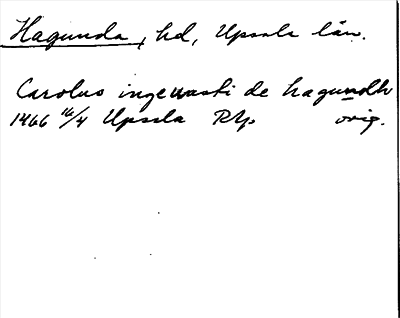 Hagunda, hd, Upsala län.
Carolus ingewasti de hagundh
1466 16/4 Upsala RAp. orig.